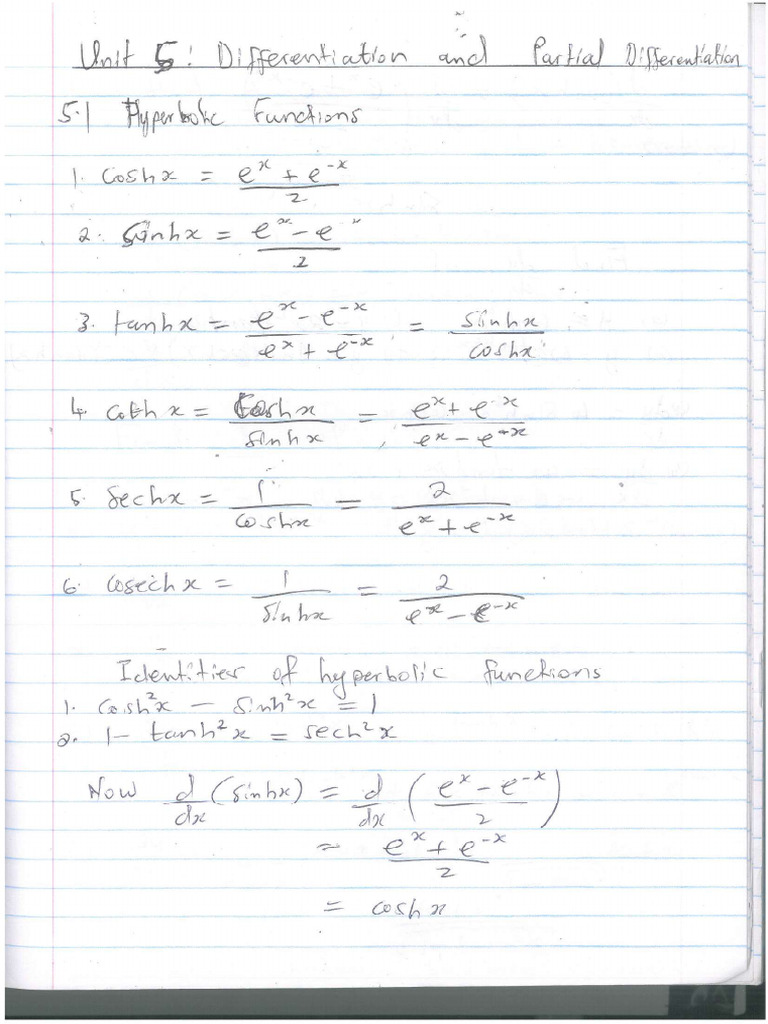 Unit 5: Differentiation and Partial Differentiation
5.1 Hyperbolic Functions
1. coshx = (e^x + e^-x)/2
2. Sinhx = (e^x - e^-x)/2
3. tanhx = (e^x - e^-x)/(e^x + e^-x) = sinhx/coshx
4. coth x = Coshx/sinhx = (e^x + e^-x)/(e^x - e^-x)
5. Sechx = 1/coshx = 2/(e^x + e^-x)
6. cosech x = 1/sinhx = 2/(e^x - e^-x)
Identities of hyperbolic functions
1. Cosh²x - sinh²x = 1
2. 1 - tanh²x = sech²x
Now d/dx (sinhx) = d/dx ((e^x - e^-x)/2)
= (e^x + e^-x)/2
= coshx